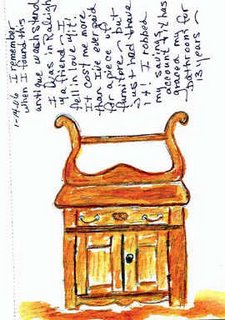 1-14-06 I remember
when I found this
antique washstand
I was in Raleigh
w/ a friend & I
fell in love w/ it!
It cost me more
than I've ever paid
for a piece of
furniture ~ but
Just had to have
it! I robbed
my savings
account & it has
graced my
bathroom for
13 years ~